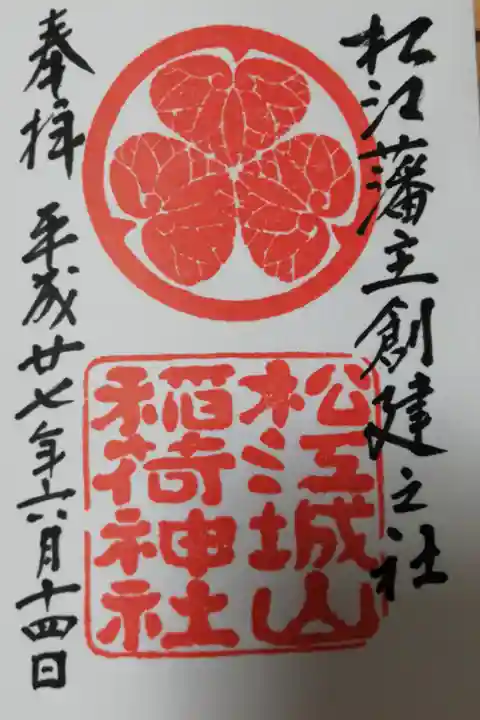 松江藩主創建之社
松江城山
稲荷神社
奉拝 平成廿七年六月十四日